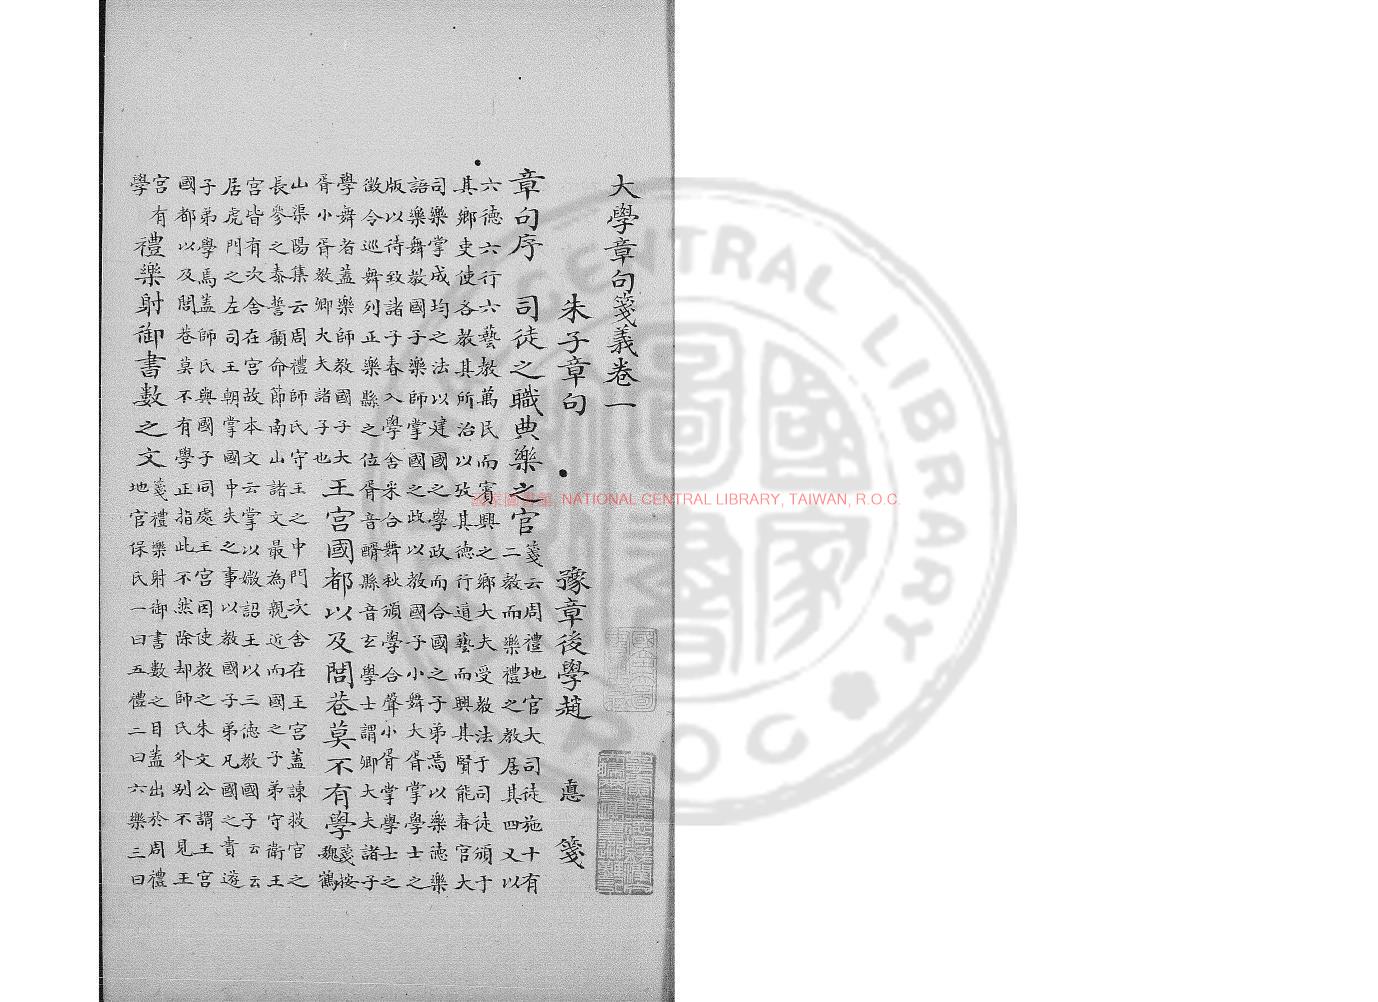 大學章句箋義卷一
朱子章句　豫章後學趙　悳　箋
章句序　司徒之職典樂之官箋云周禮地官大司徒施十有
二教而樂禮之教居其四又以
六德六行六藝教萬民而賓興之鄉大夫受教法于司徒頒于
其鄉吏使各教其所治以攷其德行道藝而興其賢能春官大
司樂掌成均之法以建國之學政而合國之子弟焉以樂德樂
語樂舞教國子樂師掌國之政以教國子小舞大胥掌學士之
版以待致諸子春入學舍采合舞秋頒學合聲小胥掌學士之
徵令巡舞列正樂縣之位胥音醑縣音玄學士謂卿大夫諸子
學舞者蓋樂師教國子大
胥小胥教卿大夫諸子也王宮國都以及閭巷莫不有學箋按
魏鶴
山渠陽集云周禮師氏守王之中門次舍在王宮蓋諫救官之
長參之泰誓顧命節南山諸文最為親近而國之子弟守衛王
宮皆有次舍在宮故本文云掌以媺詔王以三德教國子云云
居虎門之左司王朝掌國中失之事以教國子弟凡國之貴遊
子弟學焉蓋師氏與國子同處王宮因使教之朱文公謂王宮
國都以及閭巷莫不有學正指此不然除却師氏外別不見王
宮有
學禮樂射御書數之文箋禮樂射御書數之目蓋出於周禮
地官保氏一曰五禮二曰六樂三曰
國家圖書館, NATIONAL CENTRAL LIBRARY, TAIWAN, R.O.C.
CENTRAL LIBRARY
R O C